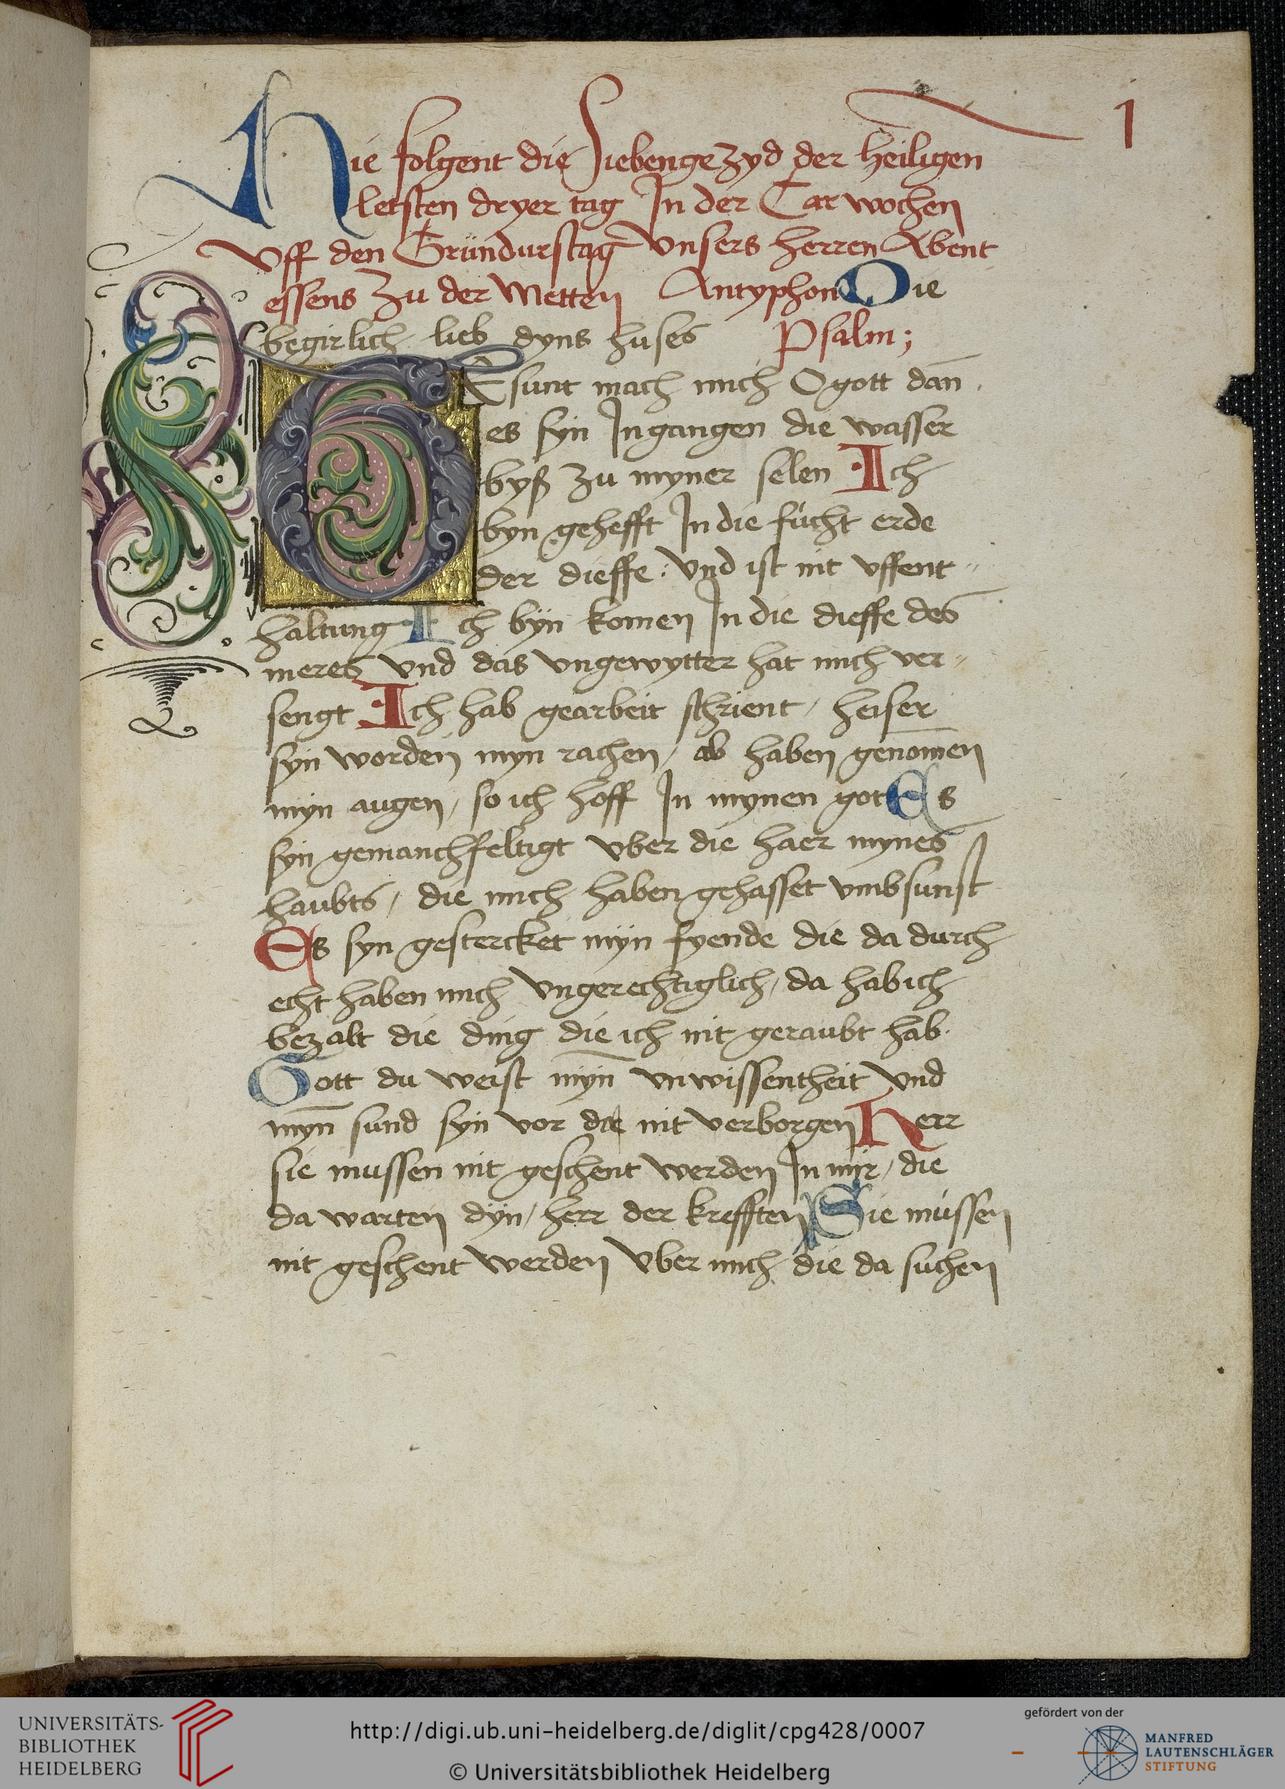 1
Hie folgent die Siebengezyd der heiligen
letsten dryer tag In der Carwochen
Vff den Gründurstag vnsers herren Abent
essens zu der Metten Antyphon Die
begirlich lieb dyns huses Psalm;
GEsunt mach mich O gott dan
es syn Ingangen die wasser
byß zu myner selen Ich
byn gehefft In die fücht erde
der dieffe: vnd ist nit vffent-
haltung Ich byn komen In die dieffe des
meres vnd das vngewytter hat mich ver-
sengt Ich hab gearbeit schrient, heiser
syn worden myn rachen, ab haben genomen
myn augen, so ich hoff In mynen gott Es
syn gemanchfeltigt vber die haer mynes
haubts, die mich haben gehasset vmbsunst
Es syn gestercket myn fyende die da durch
echt haben mich vngerechtiglich, da hab ich
bezalt die ding die ich nit geraubt hab.
Gott du weist myn vnwissentheit vnd
myn sund syn vor die nit verborgen Herr
sie mussen nit geschent werden In mir, die
da warten dyn, herr der krefften Sie müssen
nit geschent werden vber mich die da suchen
UNIVERSITÄTS-
BIBLIOTHEK
HEIDELBERG
http://digi.ub.uni-heidelberg.de/diglit/cpg428/0007
© Universitätsbibliothek Heidelberg
gefördert von der
MANFRED
LAUTENSCHLÄGER
STIFTUNG